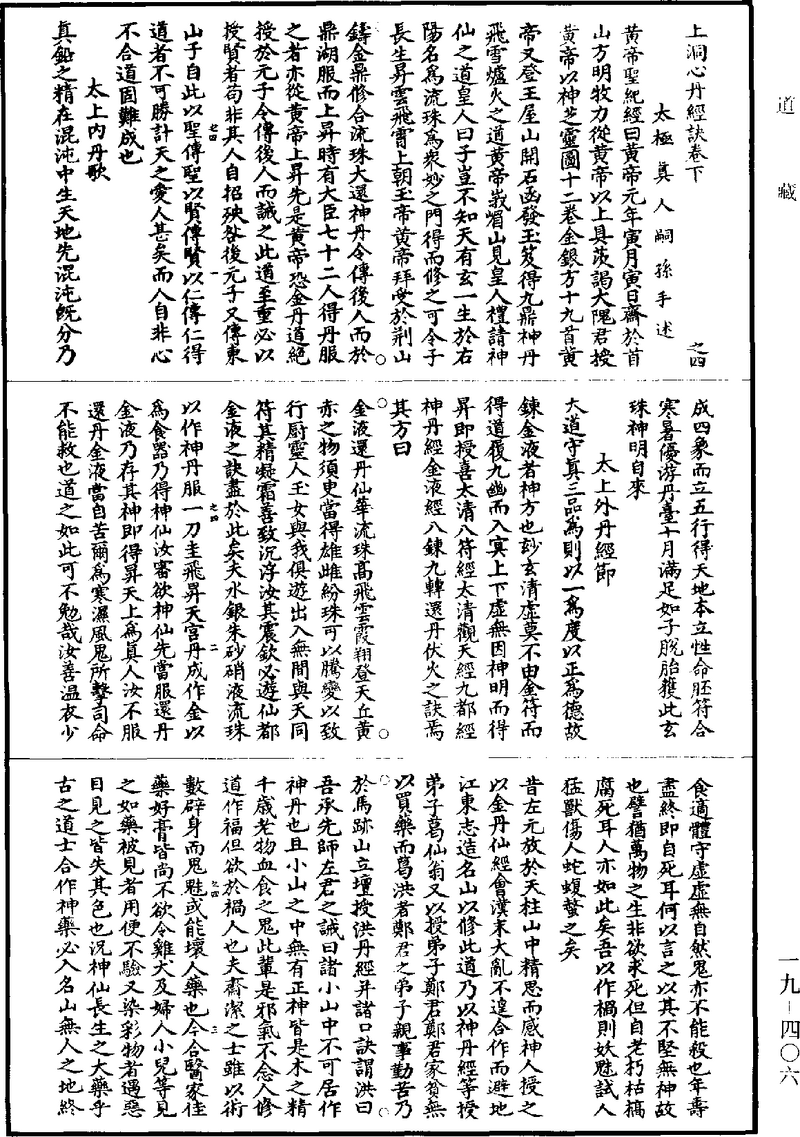 道藏
上洞心丹經訣卷下 之四
太極真人嗣孫手述
黃帝聖紀經曰黃帝元年寅月寅日齋於首
山方明牧力從黃帝以上具茨謁大隗君授
黃帝以神芝靈圖十二卷金銀方十九首黃
帝又登王屋山開石函發玉笈得九鼎神丹
飛雪爐火之道黃帝峩嵋山見皇人禮請神
仙之道皇人曰子豈不知天有玄一生於右
陽名為流珠為衆妙之門得而修之可令子
長生昇雲飛霄上朝玉帝黃帝拜受於荆山
鑄金鼎修合流珠大還神丹令傳後人而於
鼎湖服而上昇時有大臣七十二人得丹服
之者亦從黃帝上昇先是黃帝恐金丹道絕
授於元子令傳後人而誡之此道至重必以
授賢者苟非其人自招殃咎後元子又傳東
山子自此以聖傳聖以賢傳賢以仁傳仁得
道者不可勝計天之愛人甚矣而人自非心
不合道固難成也
太上內丹歌
真鉛之精在混沌中生天地先混沌既分乃
成四象而立五行得天地本立性命胚符合
寒暑優游丹臺十月滿足如子脫胎獲此玄
珠神明自來
太上外丹經節
大道守真三品為則以一為度以正為德故
鍊金液者神方也玅玄清虛莫不由金符而
得道履九幽而入冥上下虛無因神明而得
昇即授喜太清八符經太清觀天經九都經
神丹經金液經八鍊九轉還丹伏火之訣焉
其方曰
金液還丹仙華流珠高飛雲霞翔登天丘黃
赤之物須臾當得雄雌紛珠可以騰變以致
行厨靈人玉女與我俱遊出入無間與天同
符其精凝霜善致沉浮汝其震欽必遊仙都
金液之訣盡於此矣夫水銀朱砂硝液流珠
以作神丹服一刀圭飛昇天宮丹成作金以
為食器乃得神仙汝審欲神仙先當服還丹
金液乃存其神即得昇天上為真人汝不服
還丹金液當自苦爾為寒濕風鬼所擊司命
不能救也道之如此可不勉哉汝善温衣少
食適體守虛虛無自然鬼亦不能殺也年壽
盡終即自死耳何以言之以其不堅無神故
也譬猶萬物之生非欲求死但自老朽枯槁
腐死耳人亦如此矣吾以作禍則妖魅試人
猛獸傷人蛇蝮螫之矣
昔左元放於天柱山中精思而感神人授之
以金丹仙經會漢末大亂不遑合作而避地
江東志造名山以修此道乃以神丹經等授
弟子葛仙翁又以授弟子鄭君鄭君家貧無
以買藥而葛洪者鄭君之弟子親事勤苦乃
於馬跡山立壇授洪丹經并諸口訣謂洪曰
吾承先師左君之誡曰諸小山中不可居作
神丹也且小山之中無有正神皆是木之精
千歲老物血食之鬼此輩是邪氣不念人修
道作福但欲於禍人也夫齋潔之士雖以術
數辟身而鬼魅或能壞人藥也今合醫家佳
藥好膏皆尚不欲令雞犬及婦人小兒等見
之如藥被見者用便不驗又染彩物者遇惡
目見之皆失其色也況神仙長生之大藥乎
古之道士合作神藥必入名山無人之地終
一九－四〇六